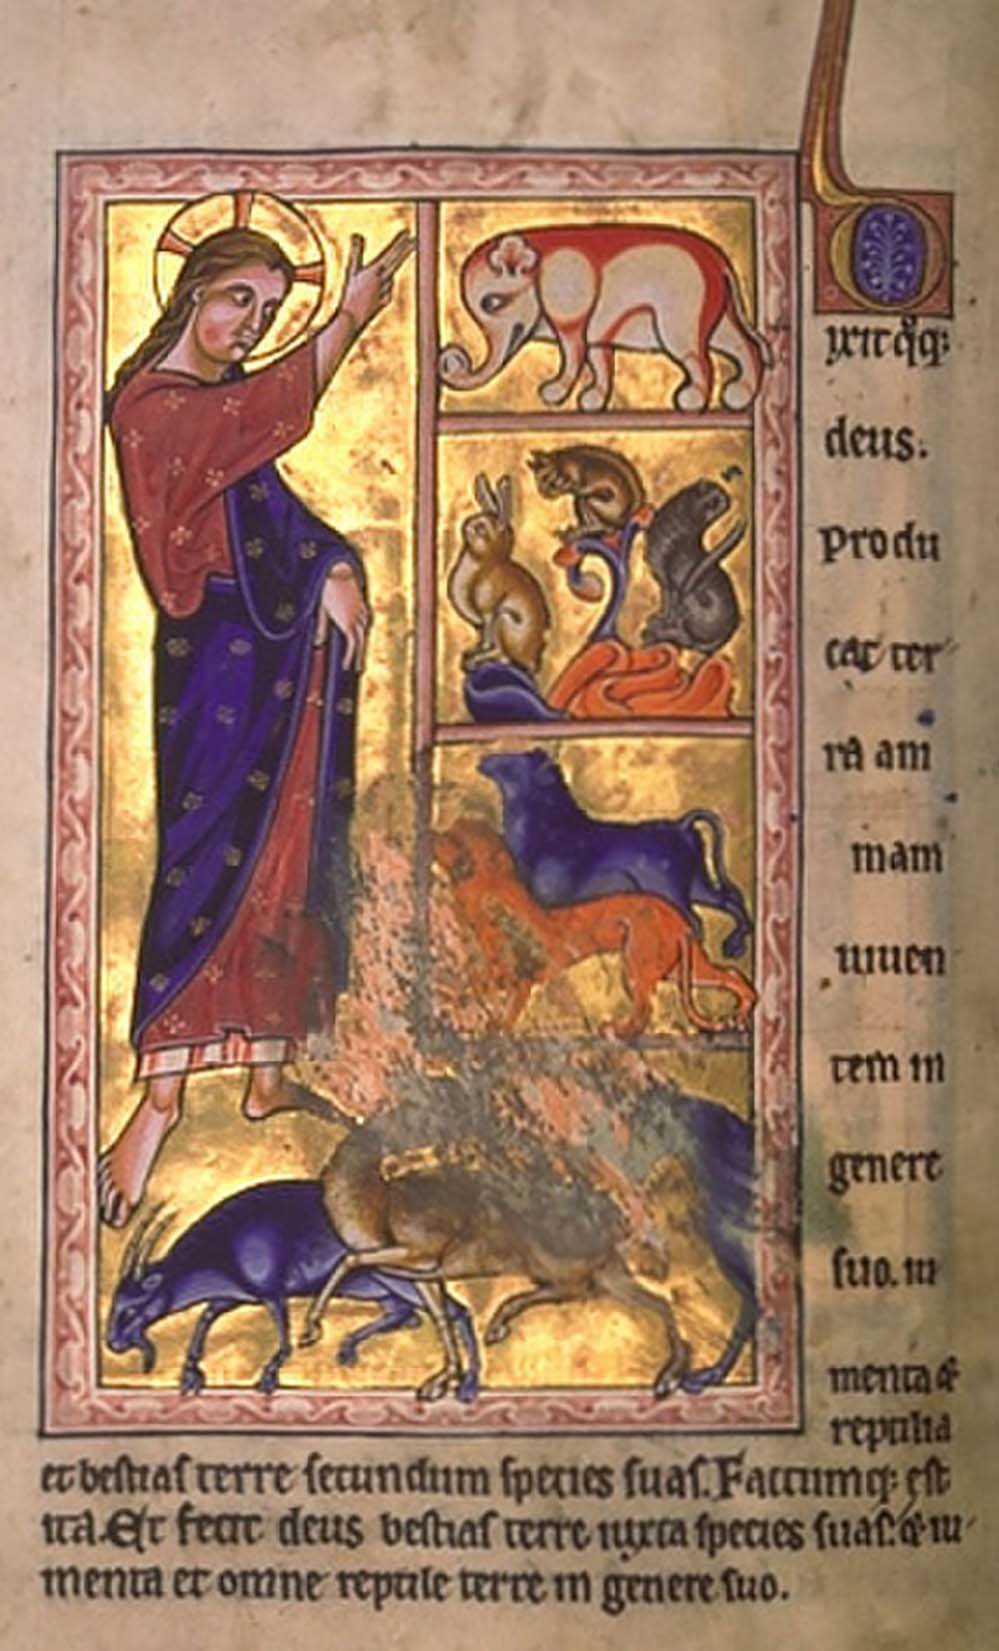 Dixit q̊q:
deus.
Produ
cat ter
ra am
mam
uiuen
tem in
genere
suo. iu
menta &
reptilia
et bestias terre secundum species suas. Factumq; est
ita. Et fecit deus bestias terre iuxta species suas. & iu
menta et omne reptile terre in genere suo.